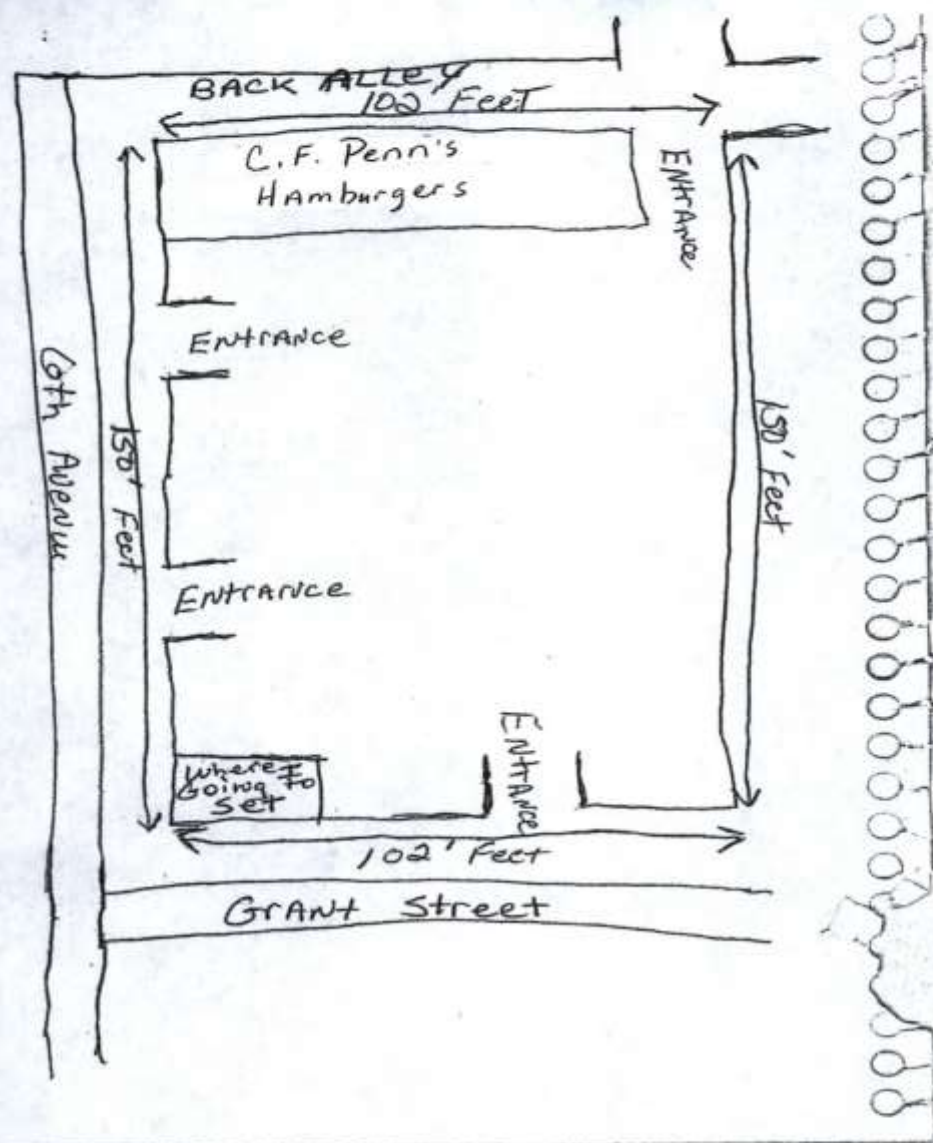 BACK ALLEY
102' FeeT
C.F. Penn's
HAmburgers
ENtrANce
ENtrANce
6th AveNue
150' Feet
150' Feet
ENtrANce
Where I
Going to
Set
ENtrANce
102' Feet
GrANt Street